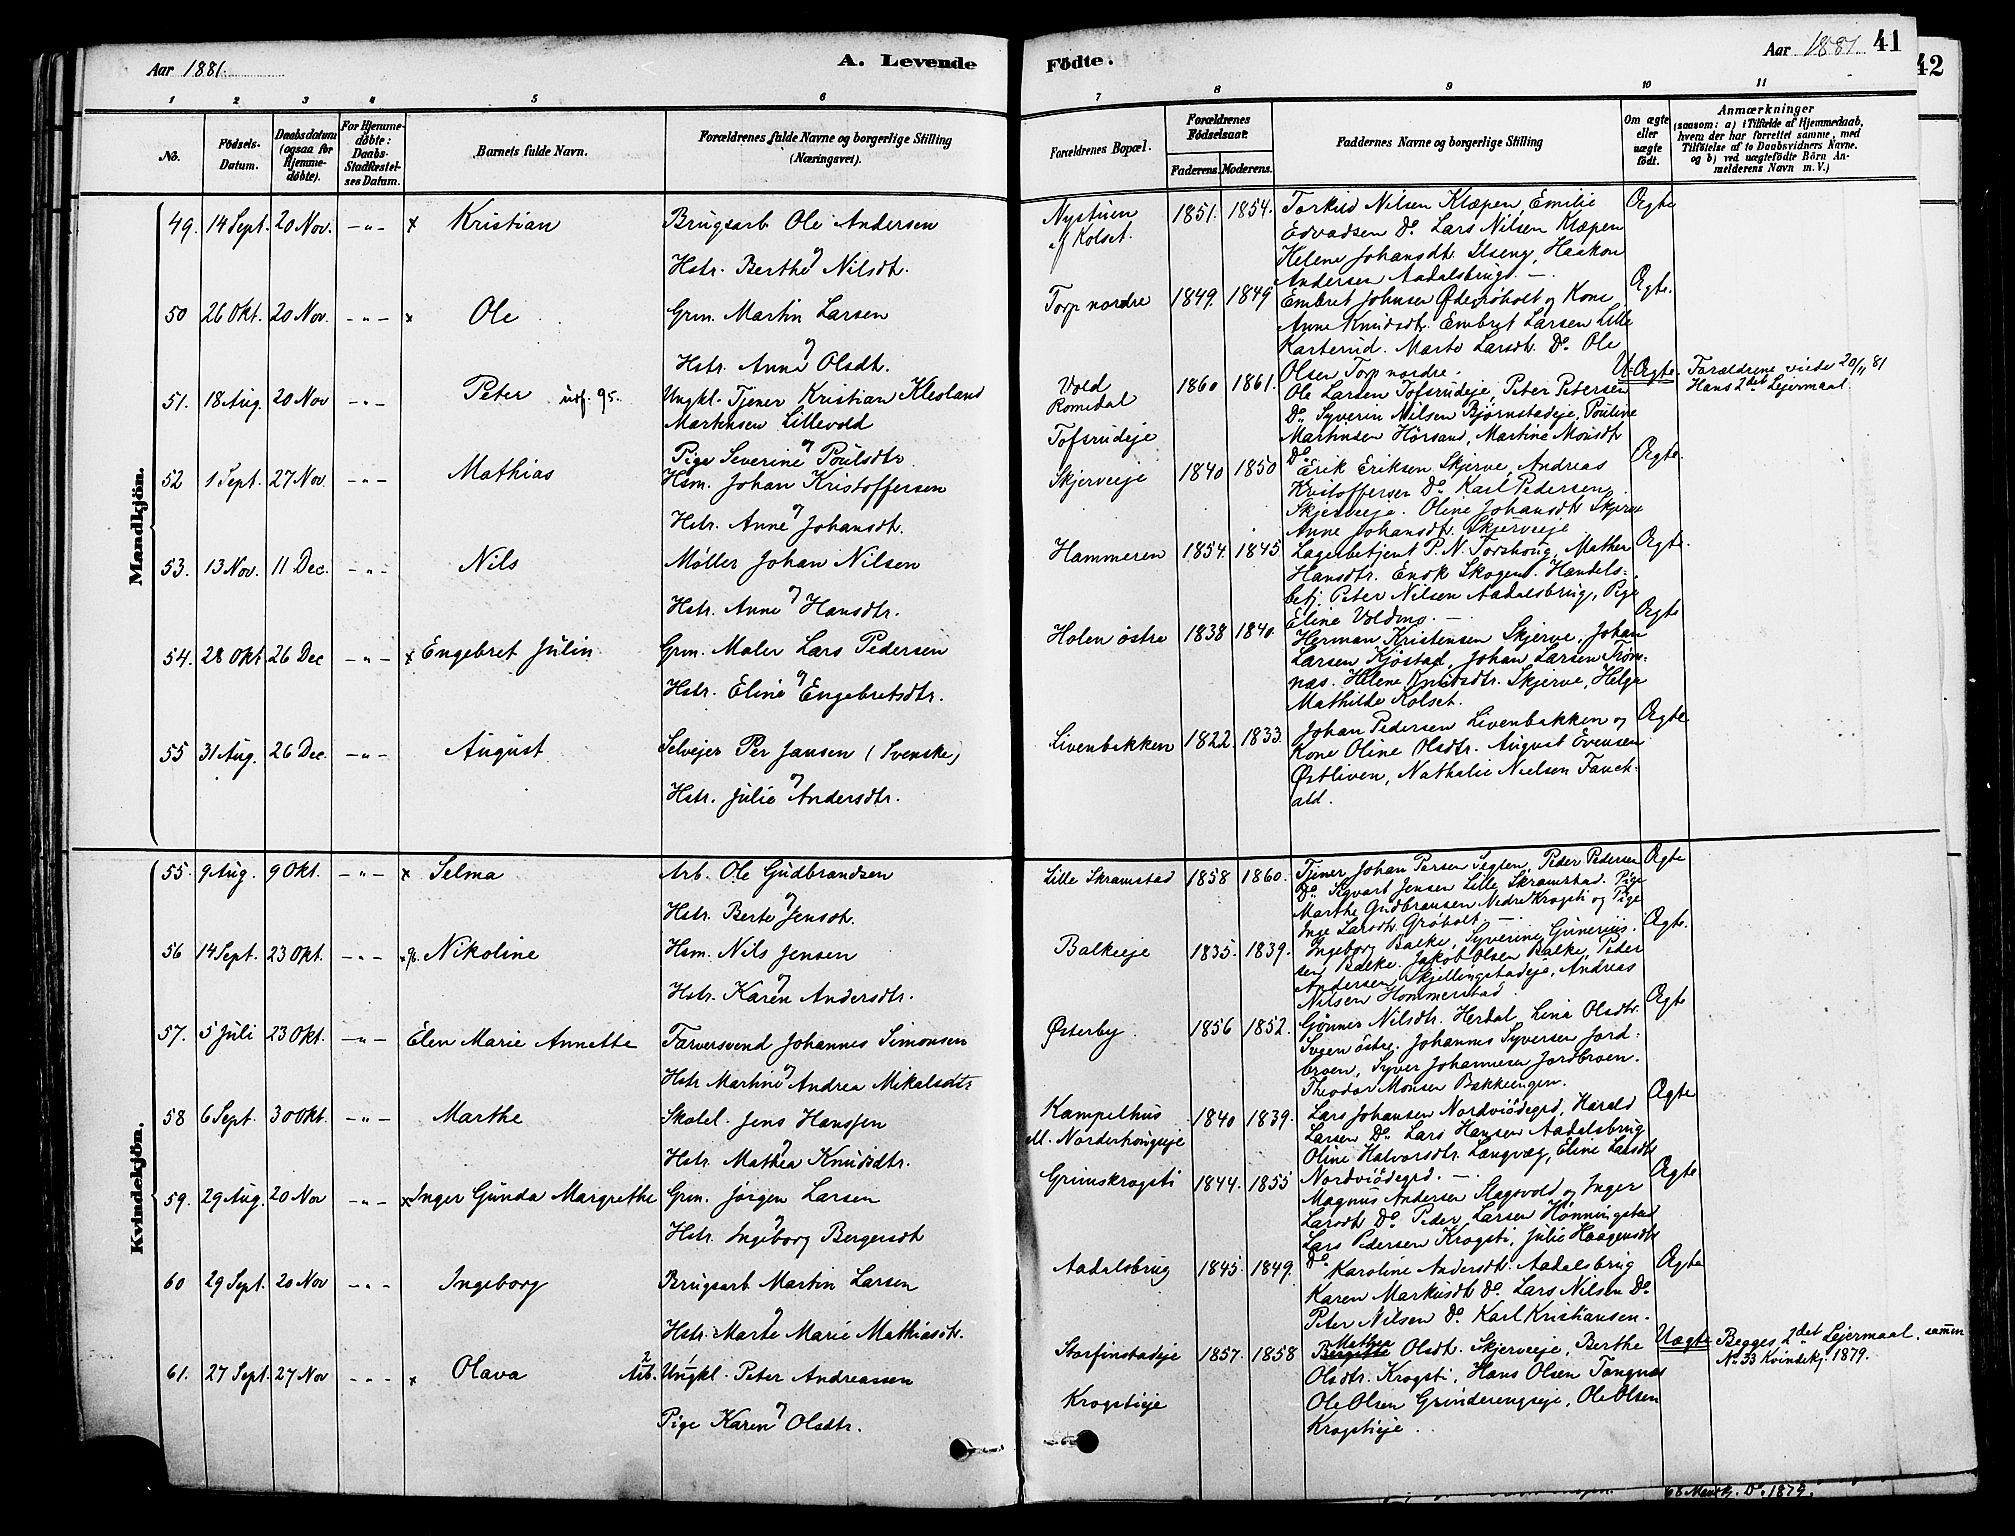 Aar 1881.
A. Levende
Fødte.
Aar 1881.
41
42
1 2 3 4 5 6 7 8 9 10 11
No.
Fødsels-Datum.
Daabsdatum (ogsaa for Hjemme-døbte).
For Hjemme-døbte: Daabs-Stadfæstel-ses Datum.
Barnets fulde Navn.
Forældrenes fulde Navne og borgerlige Stilling (Næringsvei).
Forældrenes Bopæl.
Forældrenes Fødselsaar.
Faderens. Moderens.
Faddernes Navne og borgerlige Stilling
Om ægte eller uægte født.
Anmærkninger
(saasom: a) i Tilfælde af Hjemmedaab, hvem der har forrettet samme, med Tilføielse af to Daabsvidners Navne. og b) ved uægtefødte Børn An-melderens Navn m. V.)
Mandkjön.
49. 14 Sept. 20 Nov. -"- x Kristian
Brugsarb Ole Andersen
og
Hstr. Berthe Nilsdt.
Nystuen
af Kolset.
1851. 1854.
Torkild Nilsen Klæpen Emilie
Edvadsen Do. Lars Nilsen Klæpen
Helene Johansdt. Ilseng, Haakon
Andersen Aadalsbrug. -
Ægte
50 26 Okt. 20 Nov. -"- x Ole
Grm. Martin Larsen
og
Hstr. Anne Olsdt.
Torp nordre 1849. 1849
Embret Johnsen Ødegrøholt og Kone
Anne Knudsdt. Embret Larsen Lille
Karterud. Marte Larsdt. Do. Ole
Olsen Torp nordre.
Ægte.
51. 18 Aug. 20 Nov -"- Peter
Ungkl. Tjener Kristian Klesland
Martinsen Lillevold
og
Pige Severine Poulsdtr
Vold
Romedal
Tofsrudeje
1860 1861.
Ole Larsen Tofsrudeje, Peter Petersen
Do. Syverin Nilsen Bjørnstadeje, Pouline
Martinsen Hørsand, Martine Monsdt
Do.
U-Ægte.
Forældrene viede 20/11 81
Hans 2det Lejermaal.
52 1 Sept. 27 Nov. -"- Mathias
Hsm. Johan Kristoffersen
og
Hstr. Anne Johansdt.
Skjerveeje 1840 1850
Erik Eriksen Skjerve, Andreas
Kristoffersen Do. Karl Pedersen
Skjerveeje. Oline Johansdt Skjerve
Anne Johansdt. Skjerveeje
Ægte.
53. 13 Nov. 11 Dec. -"- Nils
Møller Johan Nilsen
og
Hstr. Anne Hansdtr.
Hammeren 1854. 1845
Lagerbetjent P. N. Torshoug, Mather
Hansdtr. Enok Skogen. Handels-
betj. Peter Nilsen Aadalsbrug, Pige
Eline Voldmo. -
Ægte.
54. 28 Okt 26 Dec -"- x Engebret Julin
Grm. Maler Lars Pedersen
og
Hstr. Eline Engebretsdtr.
Holen østre 1838 1840.
Herman Kristensen Skjerve, Johan
Larsen Kjøstad, Johan Larsen Trøn-
næs. Helene Knudsdtr. Skjerve, Helga
Mathilde Kolset.
Ægte
55 31 Aug. 26 Dec. -"- August
Selvejer Per Jansen (Svenske)
og
Hstr. Julie Andersdtr.
Livenbakken 1822. 1833.
Johan Pedersen Livenbakken og
Kone Oline Olsdtr. August Evensen
Østliven, Nathalie Nielsen Fauch-
ald.
Ægte
Kvindekjön.
55. 9 Aug. 9 Okt. -"- x Selma
Arb. Ole Gudbrandsen
og
Hstr. Berte Jensdt.
Lille Skramstad 1858 1860.
Tjener Johan Persen Segten, Peder Pedersen
Do. Sigvart Jensen Lille Skramstad. Pige
Marthe Gudbransen Nedre Krogsti og Pige
Inge Larsdt. Grøholt. -
Ægte
56 14 Sept. 23 Okt. -"- Nikoline
Hsm. Nils Jensen
og
Hstr. Karen Andersdtr.
Balkeeje 1835. 1839.
Ingeborg Balke, Syverine Gunerius-
sen Balke. Jakob Olsen Balke, Peder
Andersen Skjellingstadeje, Andreas
Nilsen Hommerstad.
Ægte.
57. 5 Juli 23 Okt. -"- Elen Marie Annette
Farversvend Johannes Simonsen
og
Hstr Martine Andrea Mikalsdtr
Østerby. 1856 1852.
Gunner Nilsdtr. Herdal, Lina Olsdtr.
Sveen østre. Johannes Syversen Jord-
broen, Syver Johannesen Jordbroen.
Theodor Monsen Bakkeengen.
Ægte
58 6 Sept. 30 Okt. -"- Marthe
Skolel. Jens Hanssen
og
Hstr. Mathea Knudsdtr.
Kampelhus
M. Norderhougseje
1840 1839.
Lars Johansen Nordviødegrd, Harald
Larsen Do. Lars Hansen Aadalsbrug
Oline Halvorsdtr. Langvæg, Eline Larsdt
Nordviødegrd. -
Ægte
59. 29 Aug. 20 Nov -"- x Inger Gunda Margrethe
Grm. Jørgen Larsen
og
Hstr. Ingeborg Bergersdt
Grimskrogsti 1844. 1855
Magnus Andersen Slagsvold og Inger
Larsdt Do. Peder Larsen Hønningstad
Lars Pedersen Krogsti, Julie Haagensdt
Do.
Ægte
60 29 Sept. 20 Nov -"- Ingeborg
Brugsarb Martin Larsen
og
Hstr. Marte Marie Mathiasdtr.
Aadalsbrug 1845. 1849.
Karoline Andersdt. Aadalsbrug
Karen Markusdt Do. Lars Nilsen Do.
Peter Nilsen Do. Karl Kristiansen.
Ægte
61. 27 Sept. 27 Nov -"- x Olava
Arb. Ungkl. Peter Andreassen
og
Pige Karen Olsdtr.
Storfinstadeje
Krogstieje
1857. 1858
Mathea
Olsdt. Skjerveeje, Berthe
Olsdtr. Krogsti, Hans Olsen Tangnæs
Ole Olsen Grinderengseje, Ole Olsen
Krogstieje.
Uægte
Begges 2det Lejermaal, sammen
No. 33 Kvindekj. 1879.
68 Mandkj. Do. 1879.